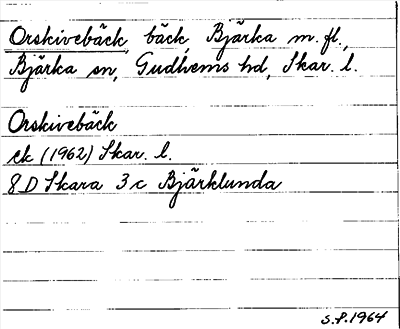 Orskivebäck, bäck, Bjärka m. fl.,
Bjärka sn, Gudhems hd, Skar. l.
Orskivebäck
ek (1962) Skar. l.
8D Skara 3c Bjärklunda
S.P. 1964